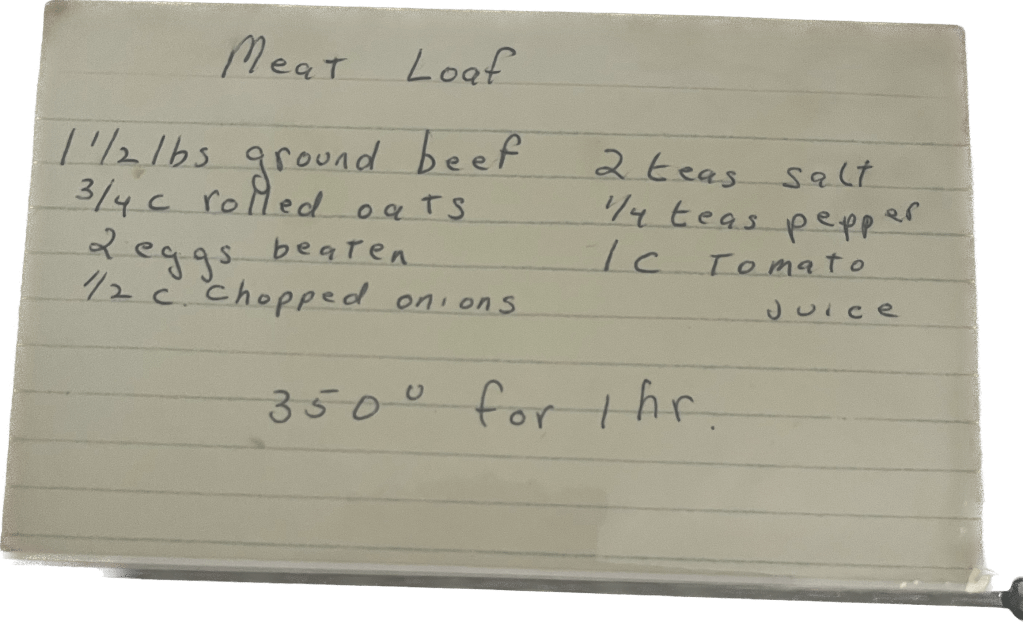 Meat Loaf
1 1/2 lbs ground beef
3/4 c rolled oats
2 eggs beaten
1/2 c. chopped onions
2 teas salt
1/4 teas pepper
1 c Tomato
Juice
350° for 1 hr.